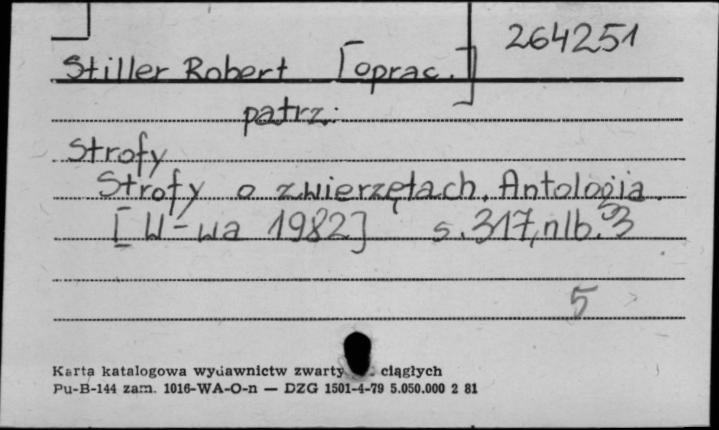 264251
Stiller Robert [oprac.]
patrz:
Strofy
Strofy o zwierzętach. Antologia.
[W-wa 1982] s. 317, nlb. 3
5
Karta katalogowa wydawnictw zwarty ciągłych
Pu-B-144 zam. 1016-WA-O-n — DZG 1501-4-79 5.050.000 2 81